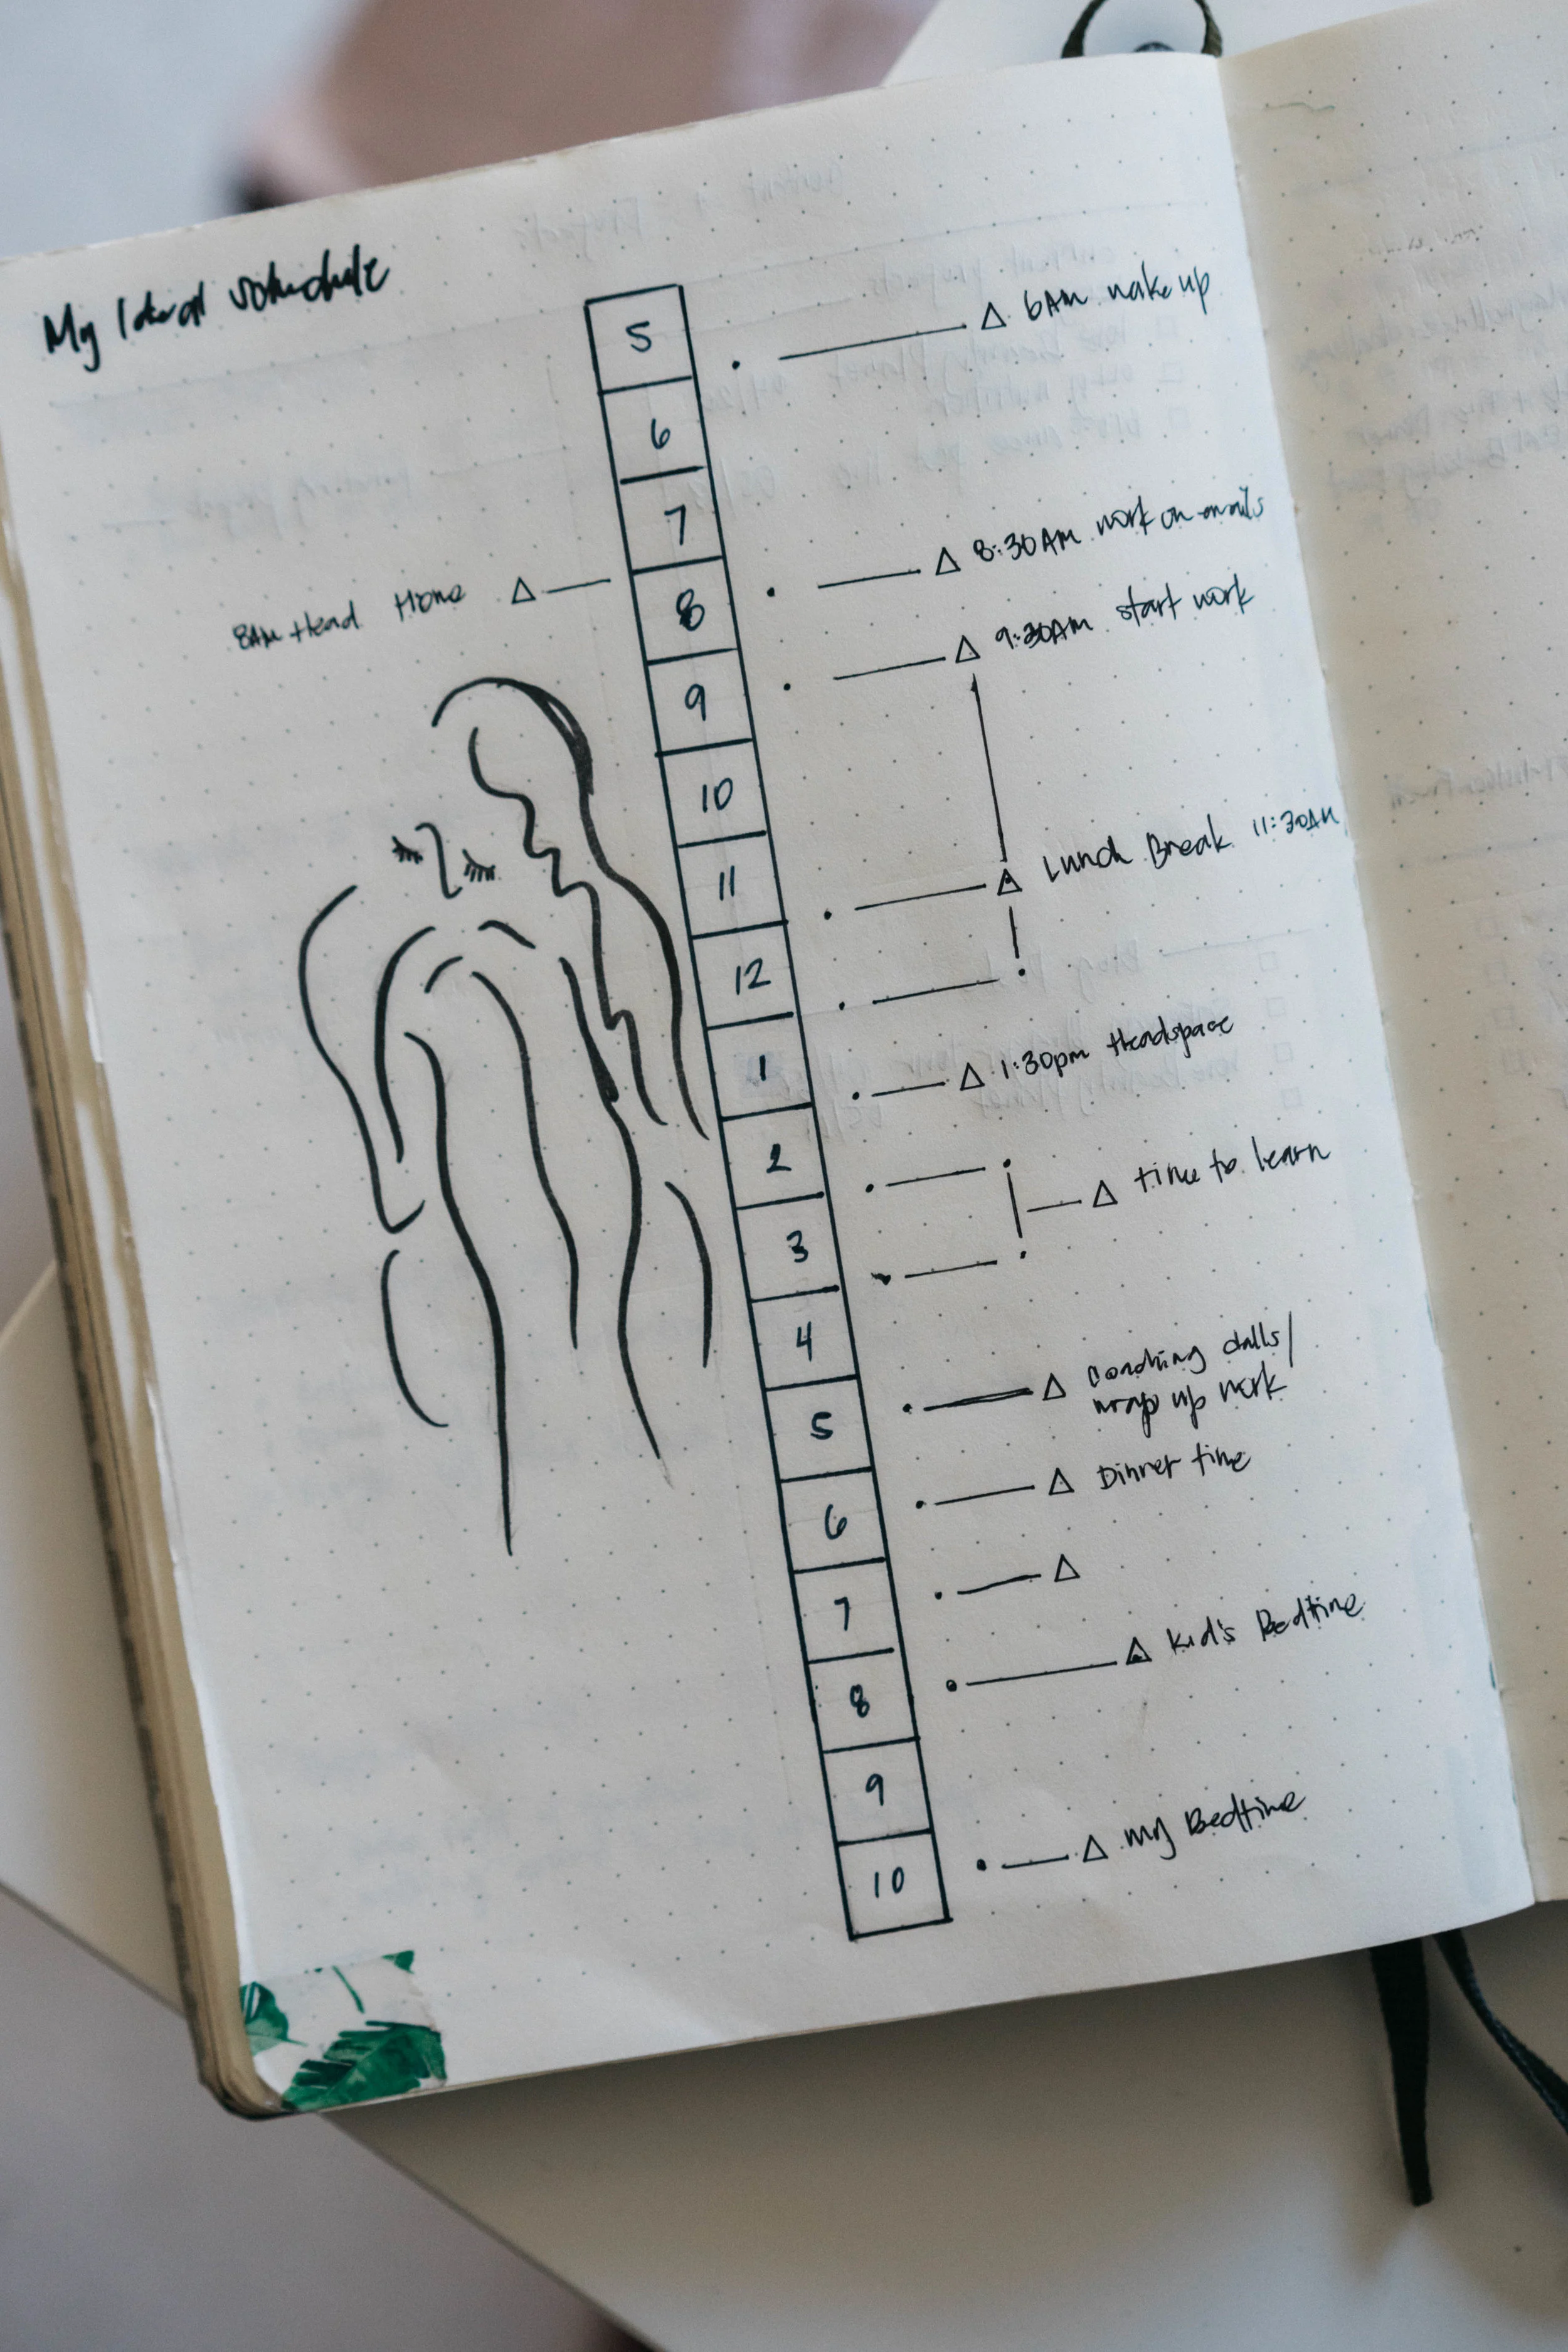 My Ideal schedule
5
6AM wake up
6
7
8:30AM work on emails
8AM Head Home
8
9:30AM start work
9
10
Lunch Break 11:30AM
11
12
1:30pm Headspace
1
2
time to learn
3
4
coaching calls/
wrap up work
5
Dinner time
6
7
Kid's Bedtime
8
9
My Bedtime
10